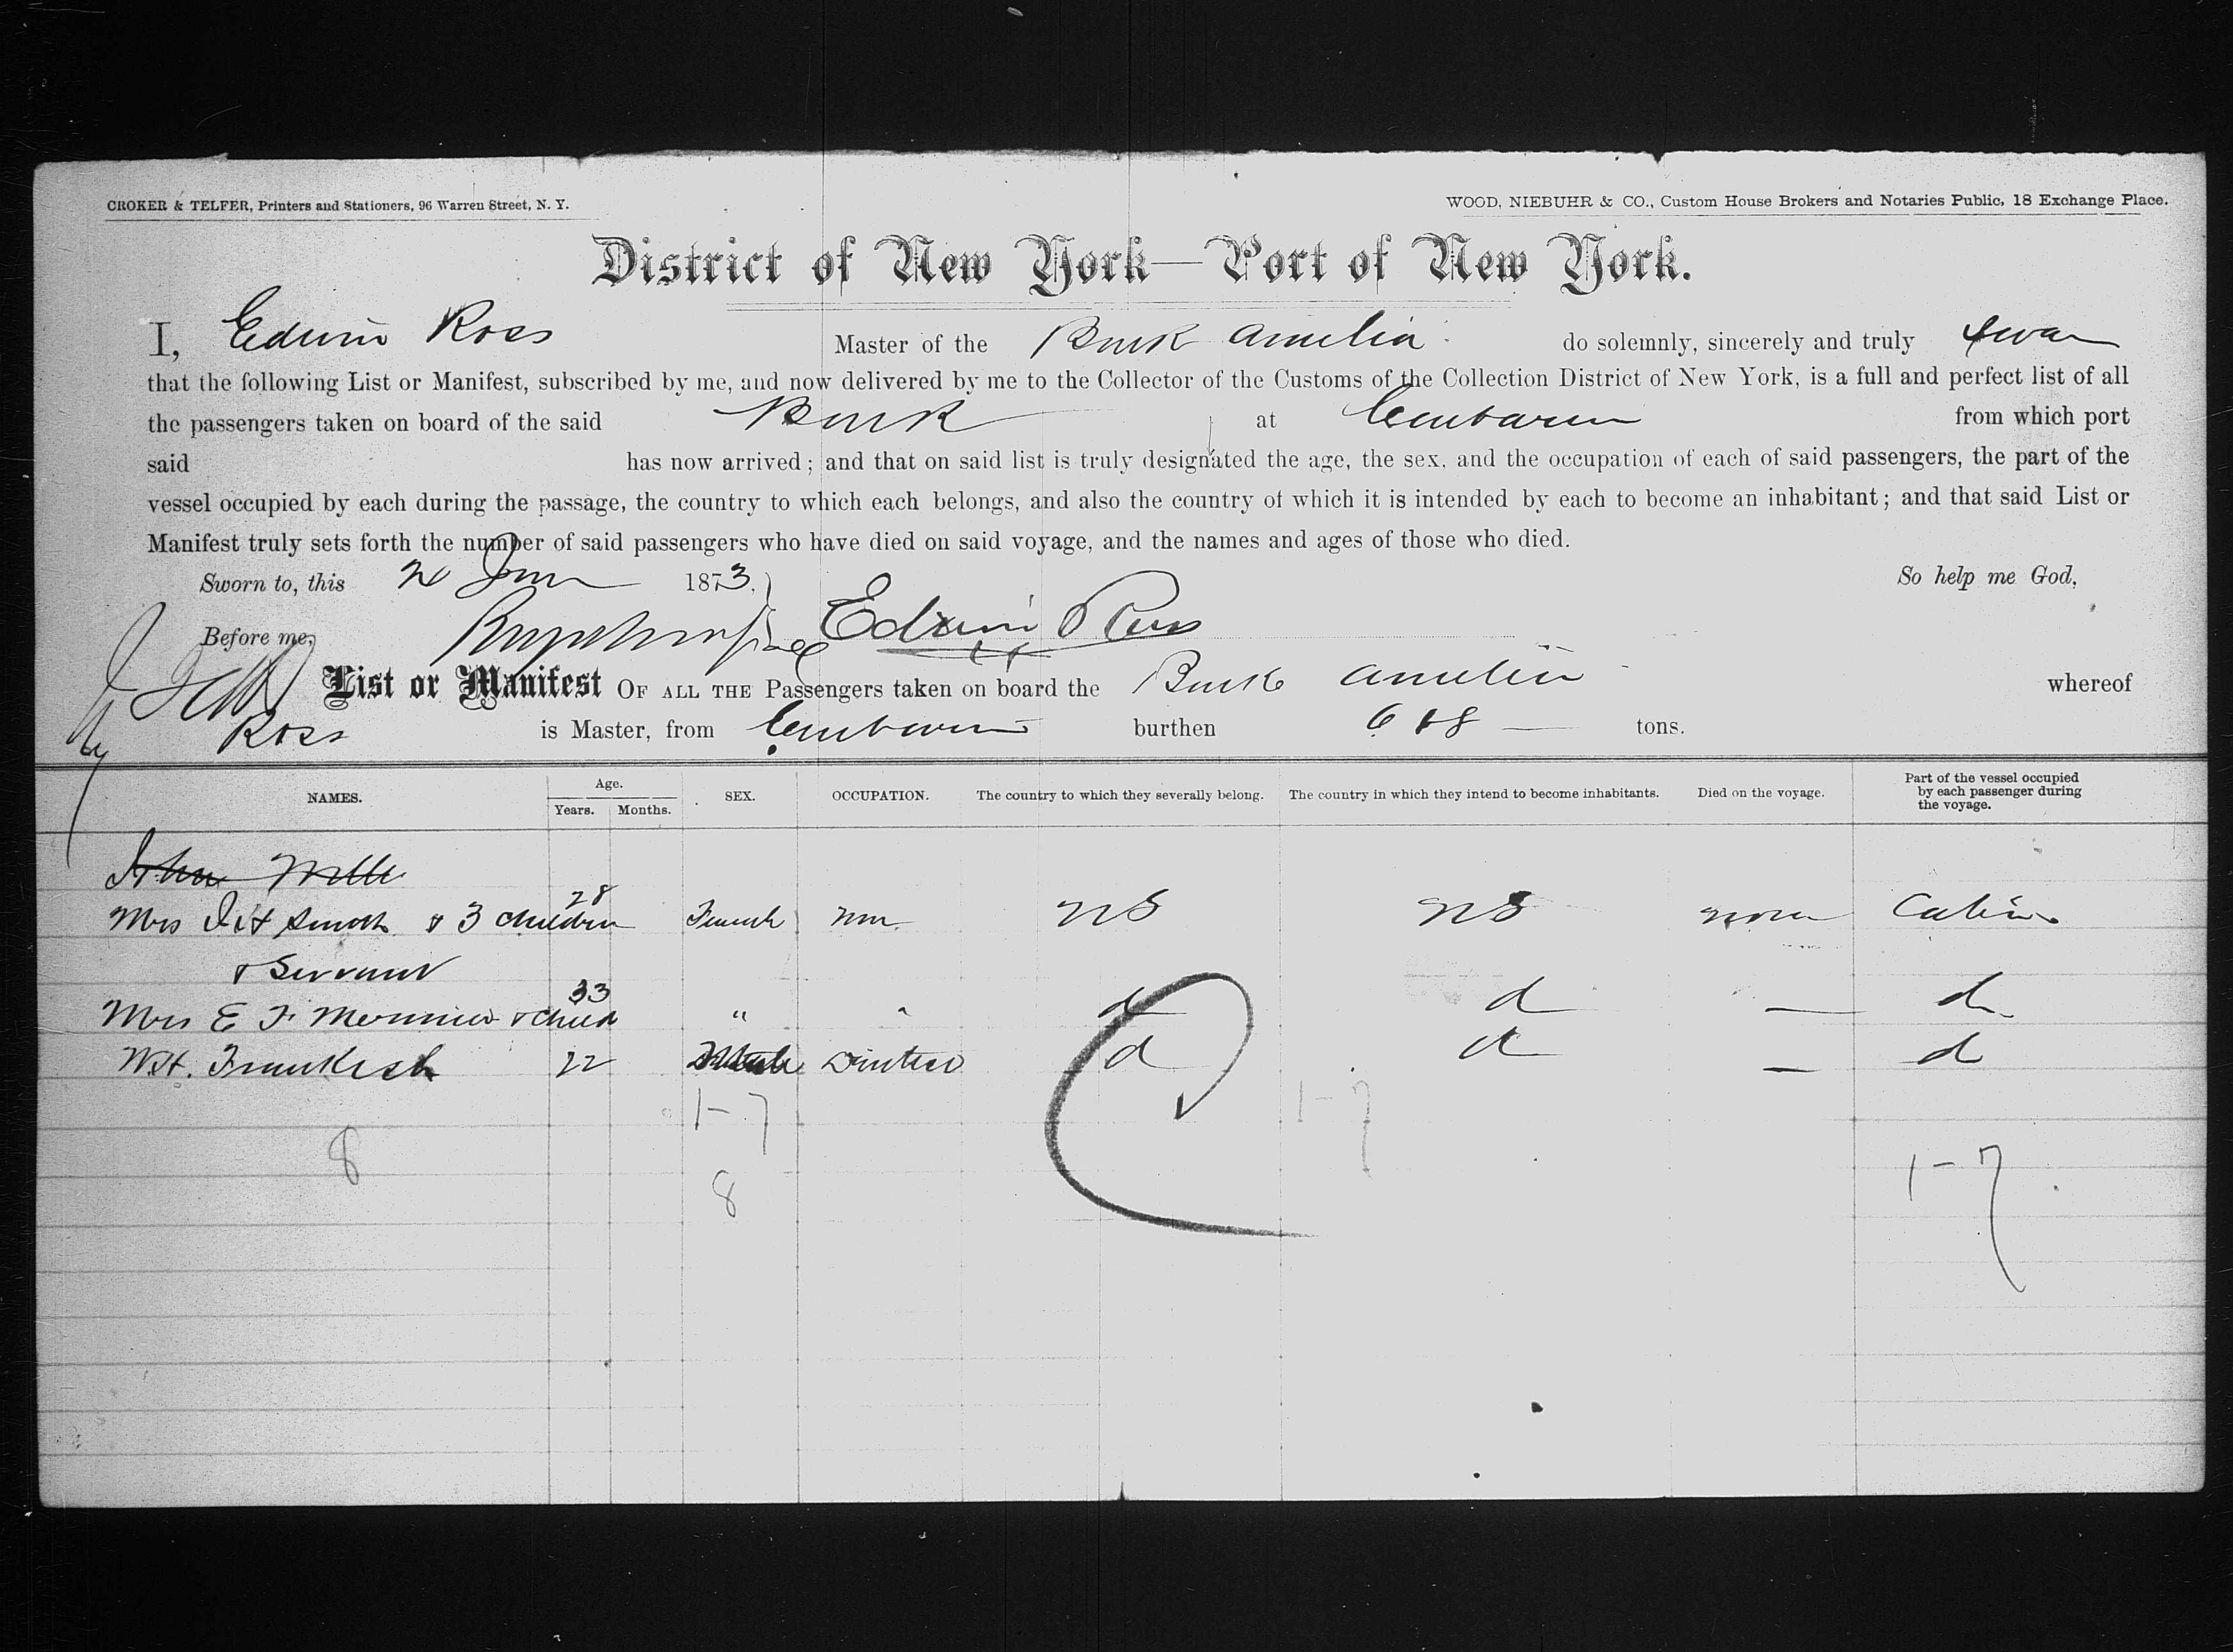 CROKER & TELFER, Printers and Stationers, 96 Warren Street, N. Y.
WOOD, NIEBUHR & CO., Custom House Brokers and Notaries Public, 18 Exchange Place.
District of New York—Port of New York.
I, Edwin Ross Master of the Bark Amelia do solemnly, sincerely and truly swear
that the following List or Manifest, subscribed by me, and now delivered by me to the Collector of the Customs of the Collection District of New York, is a full and perfect list of all
the passengers taken on board of the said Bark at from which port
said has now arrived; and that on said list is truly designated the age, the sex, and the occupation of each of said passengers, the part of the
vessel occupied by each during the passage, the country to which each belongs, and also the country of which it is intended by each to become an inhabitant; and that said List or
Manifest truly sets forth the number of said passengers who have died on said voyage, and the names and ages of those who died.
Sworn to, this 1873. So help me God,
Before me, Edwin Ross
List or Manifest OF ALL THE Passengers taken on board the Bark Amelia whereof
Ross is Master, from burthen tons.
NAMES. Age. Years. Months. SEX. OCCUPATION. The country to which they severally belong. The country in which they intend to become inhabitants. Died on the voyage. Part of the vessel occupied by each passenger during the voyage.
John
Mrs Smith & 3 children 28 Female US US none Cabin
& Servant
Mrs E F & child 33 " d d — d
W.H. 22 Male d d — d
1-7 1-7
8
1-7
8